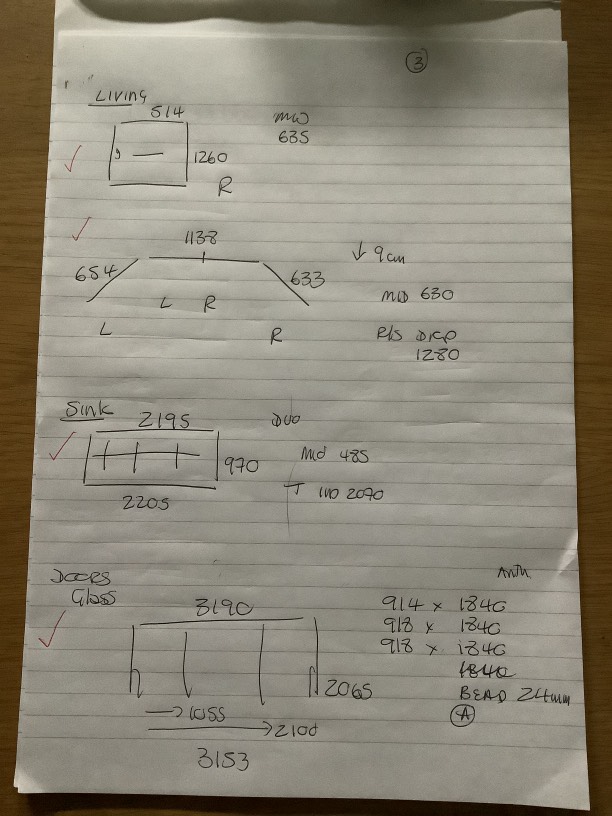 3
Living
514
MID
635
1260
R
1138
654
633
↓ 9cm
L R
MID 630
L
R
R/S DROP
1280
Sink
2195
DUO
970
MID 485
2205
T IVO 2070
DOORS
Glass
Anth
3190
914 x 1840
918 x 1840
918 x 1840
1840
2065
BEAD 24mm
→ 1055
A
→ 2100
3153